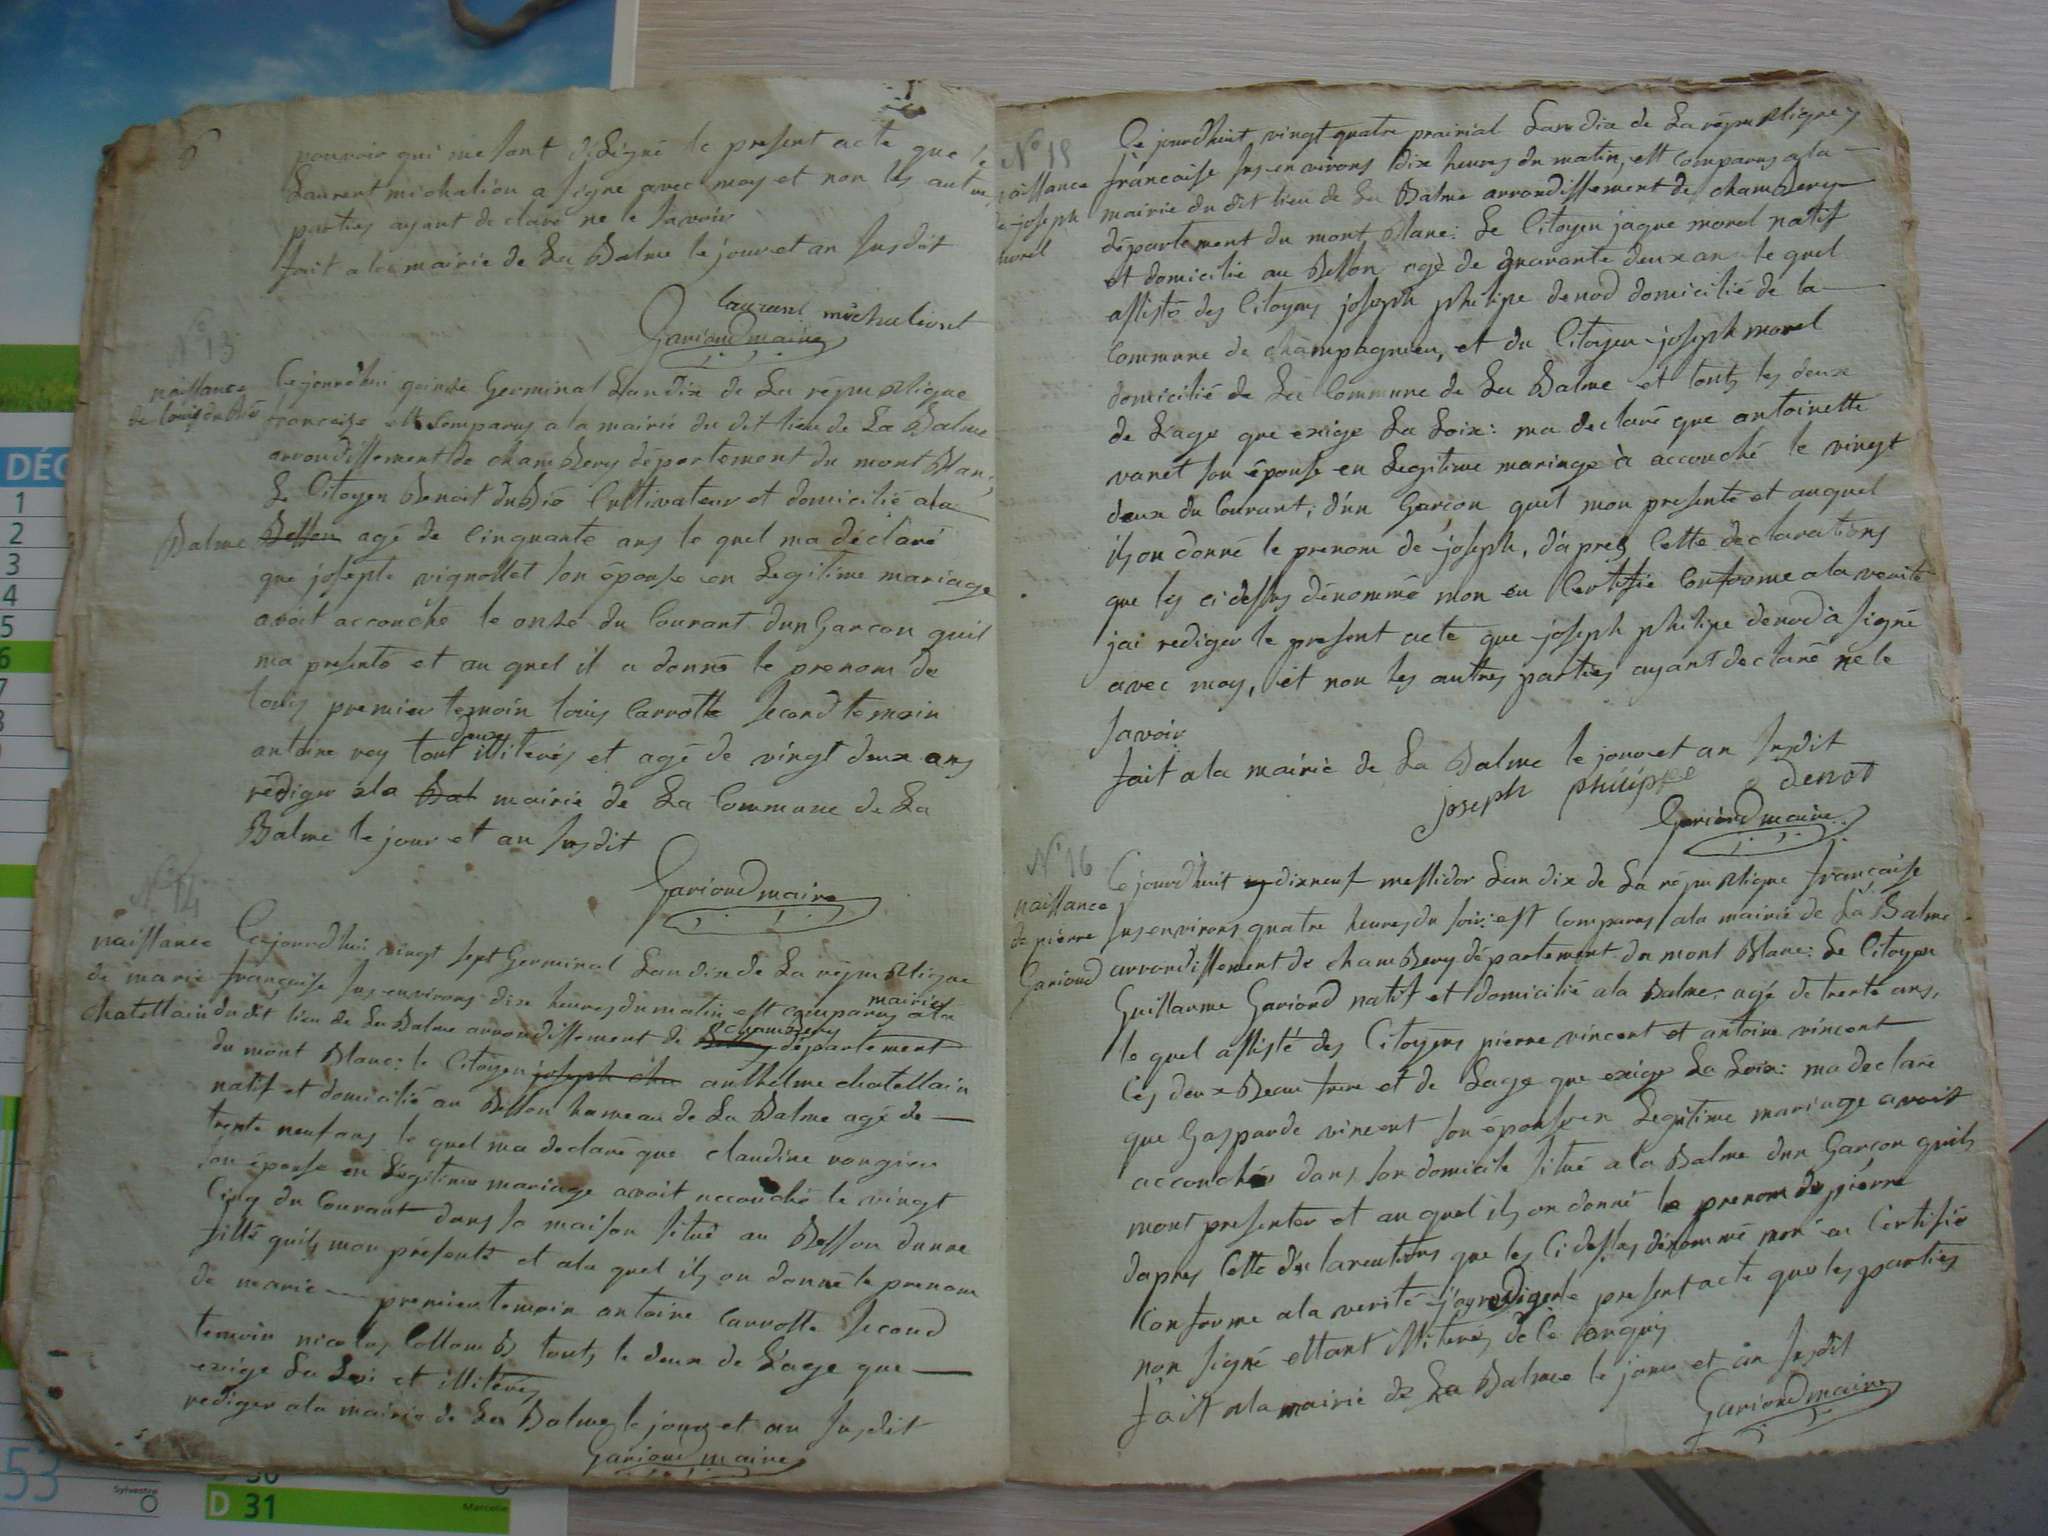 6
pouvoir qui me sont délégué le present acte que le
Laurent michalion a signe avec moy et non les autre
parties ayant declaré ne le savoir
fait a la mairie de La Balme le jour et an susdit
laurent michaliont
Gariond maire
N° 13
naissance
de louis dubié
Cejourdhui quinze Germinal Lan dix de La republique
francaise est Comparus a la mairie du dit lieu de La Balme
arrondissement de chambery département du mont Blanc,
Le Citoyen Benoit dubié Cultivateur et domicilié ala
Balme Besson agé de Cinquante ans le quel ma déclaré
que josepte vignollet son épouse en Legitime mariage
avoit accouché le onze du Courant dun Garcon quil
ma presenté et au quel il a donné le prenom de
louis premier temoin louis Carrotte second temoin
antoine rey tout deux illiterés et agé de vingt deux ans
rediger ala Bal mairie de La Commune de La
Balme le jour et an susdit
Gariond maire
N° 14
naissance
de marie
chatellain
Cejourdhui vingt sept Germinal Lan dix de La republique
française sus environs dixe heures du matin est comparus ala mairie
du dit lieu de La Balme arrondissement de chambery département
du mont Blanc: le Citoyen joseph cha anthelme chatellain
natif et domicilié au Besson hameau de La Balme agé de
trente neuf ans le quel ma declaré que claudine
son épouse en Légitime mariage avoit accouché le vingt
Cinq du Courant dans sa maison situé au Besson dunne
fille quils mon présenté et ala quel ils on donné le prenom
de marie premier temoin antoine Carrotte second
temoin nicolas Collomb touts le deux de Lage que
exige La Loi et illiterés
rediger ala mairie de La Balme le jour et an susdit
Gariond maire
N° 15
naissance
de joseph
morel
Cejourdhuit vingt quatre prairial Lan dix de La republique
francaise sus-environs dix heures du matin, est Comparus ala
mairie du dit lieu de La Balme arrondissement de chambery
département du mont Blanc: Le Citoyen jaque morel natif
et domicilié au Besson agé de quarante deux an le quel
assisté des Citoyens joseph philipe denod domicilié de la
Commune de champagnieu, et du Citoyen joseph morel
domicilié de La Commune de La Balme et touts les deux
de Lage que exige La Loix: ma declaré que antoinette
varet son épouse en Legitime mariage à accouché le vingt
deux du Courant; dun Garcon quil mon presenté et auquel
ils on donné le prenom de joseph, dápres Cette declarations
que les ci dessus dénommé mon en Certifié Conforme ala verité
jai rediger le present acte que joseph philipe denod à signé
avec moy, et non les autres parties ayant declaré ne le
savoir
fait ala mairie de La Balme le jour et an susdit
joseph philippe denot
Gariond maire
N° 16
naissance
de pierre
Gariond
Cejourdhuit dixneuf messidor Lan dix de La republique française
sus environs quatre heures du soir: est Comparus ala mairie de La Balme
arrondissement de chambery département du mont Blanc: Le Citoyen
Guillaume Gariond natif et domicilié ala Balme: agé de trente ans,
le quel assisté des Citoyens pierre vincent et antoine vincent
Ces deux Beau frere et de Lage que exige La Loix: ma declaré
que Gasparde vincent son épouse en Legitime mariage avoit
accouchée dans son domicile situé ala Balme dun Garcon quils
mont presenter et au quel ils on donné le prenom de pierre
dapres Cette déclarations que les Ci dessus dénommé mon en Certifié
Conforme ala verité j'ay rediger le present acte que les parties
non signé ettant illiterés de Ce
fait ala mairie de La Balme le jour et an susdit
Gariond maire
DÉC
1
2
3
4
5
6
7
53
Sylvestre
D 31
Marcelle